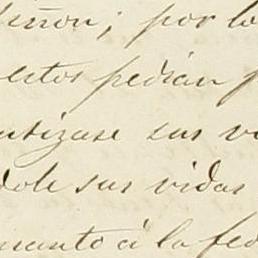 señor; por lo
estos pedian
tizase sus v
dole sus vidas
manto á la fed